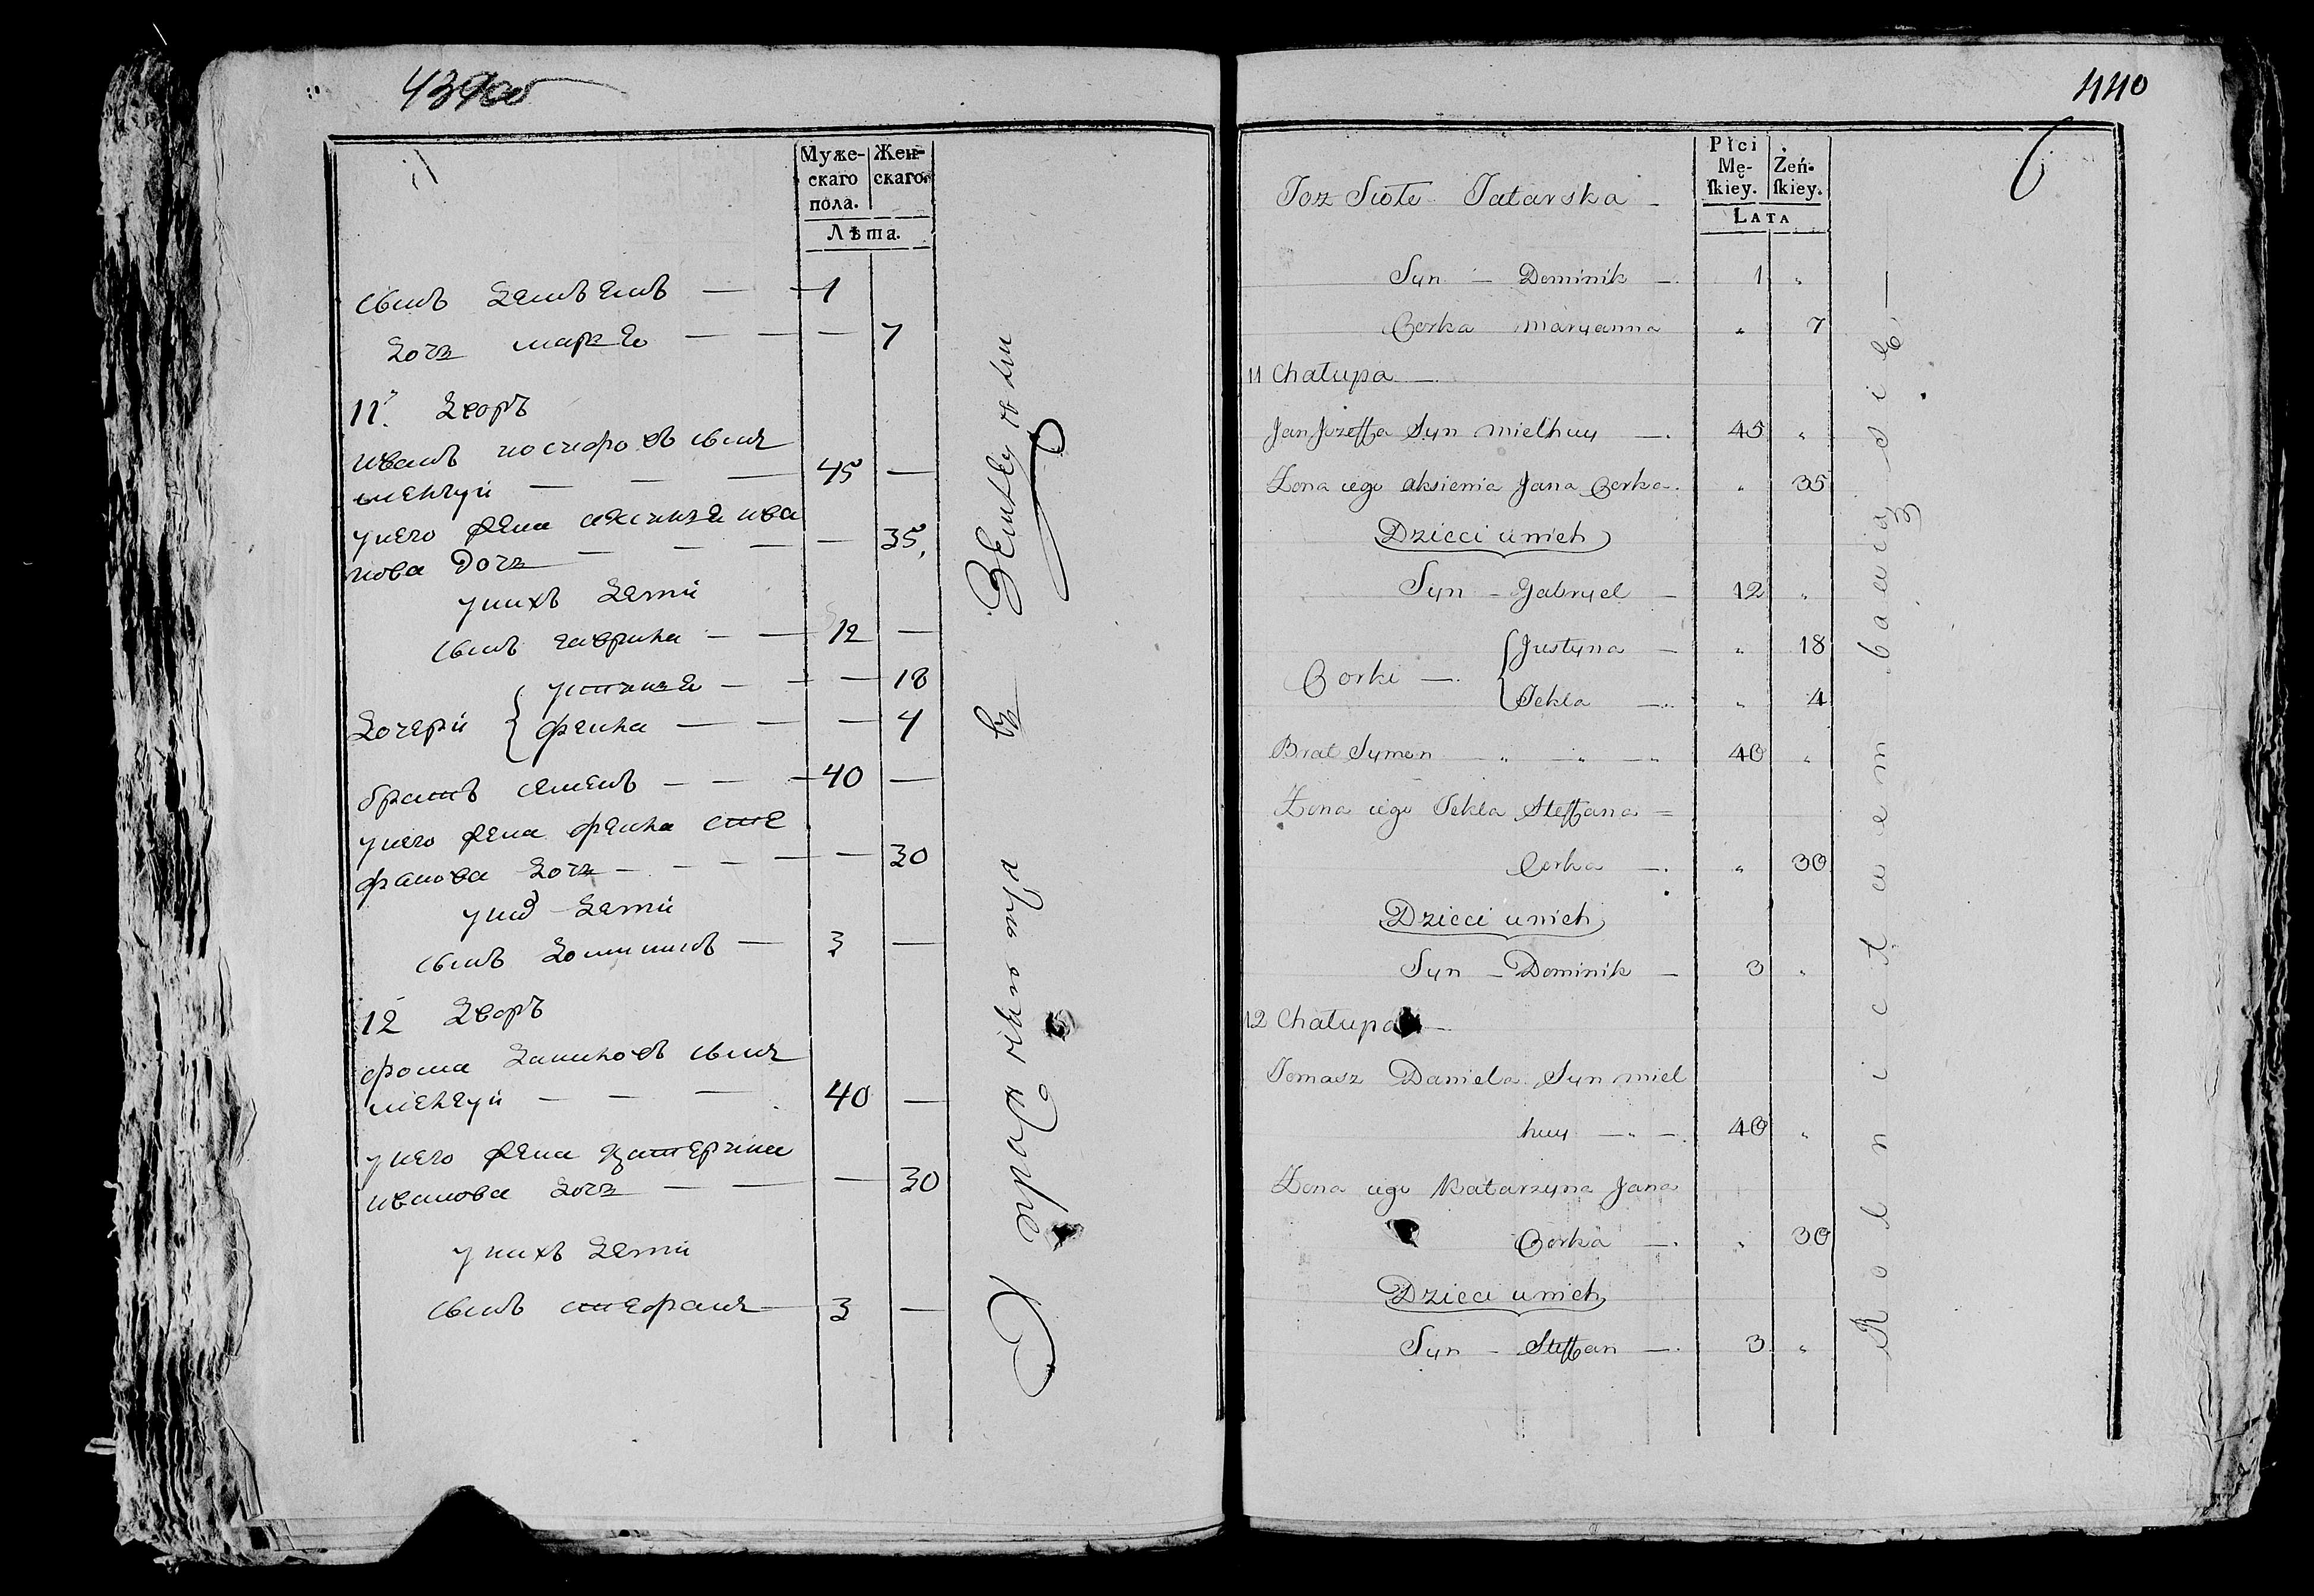 439об
Муже-
скаго
пола.
Жен-
скаго.
Лѣта.
сынъ
дочь марья — — — 7
11. дворъ
иванъ иосифовъ сынъ
мелхуй — — — 45 —
унего жена аксинья ива
нова дочь — — — — 35.
унихъ дети
сынъ гаврила — — 12 —
дочери { устинья — — — 18
фекла — — — 4
братъ семенъ — — — 40 —
унего жена фекла сте
фанова дочь — — — — 30
уних дети
сынъ доминикъ — 3 —
12 дворъ
фома даниловъ сынъ
мелхуй — — — 40 —
унего жена катерина
иванова дочь — — — 30
унихъ дети
сынъ стефанъ — 3 —
въ
440
Płci
Mę-
ſkiey.
Żeń-
ſkiey.
LATA
Toz Sioło Tatarska —
Syn — Dominik — 1 "
Corka maryanna " 7
11 Chałupa —
Jan Jozeffa Syn mielhuy — 45 "
Zona iego aksienia Jana Corka. " 35
Dzieci unich
Syn — Gabryel — 12 "
Corki — { Justyna — " 18
Tekla — " 4
Brat Symon — " — " — " 40 "
Zona iego Tekla Steffana =
Corka — " 30
Dzieci unich
Syn — Dominik — 3 "
12 Chałupa —
Tomasz Daniela Syn miel
huy — " — 40 "
Zona iego Katarzyna Jana
Corka — " 30
Dzieci unich
Syn — Steffan — 3 "
Rolnictwem bawią się —